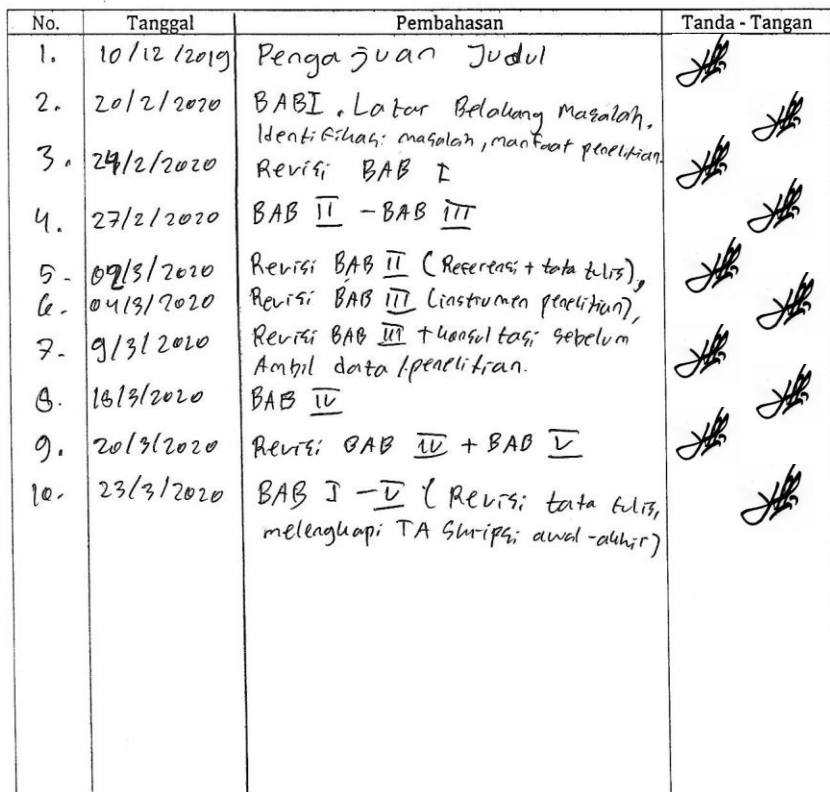 No. Tanggal Pembahasan Tanda - Tangan
1. 10/12/2019 Pengajuan Judul
2. 20/2/2020 BAB I. Latar Belakang Masalah,
Identifikasi masalah, manfaat penelitian.
3. 24/2/2020 Revisi BAB I
4. 27/2/2020 BAB II - BAB III
5. 02/3/2020 Revisi BAB II (Referensi + tata tulis),
6. 04/3/2020 Revisi BAB III (instrumen penelitian),
7. 9/3/2020 Revisi BAB III + konsultasi sebelum
Ambil data /penelitian.
8. 18/3/2020 BAB IV
9. 20/3/2020 Revisi BAB IV + BAB V
10. 23/3/2020 BAB I - V (Revisi tata tulis,
melengkapi TA Skripsi awal-akhir)